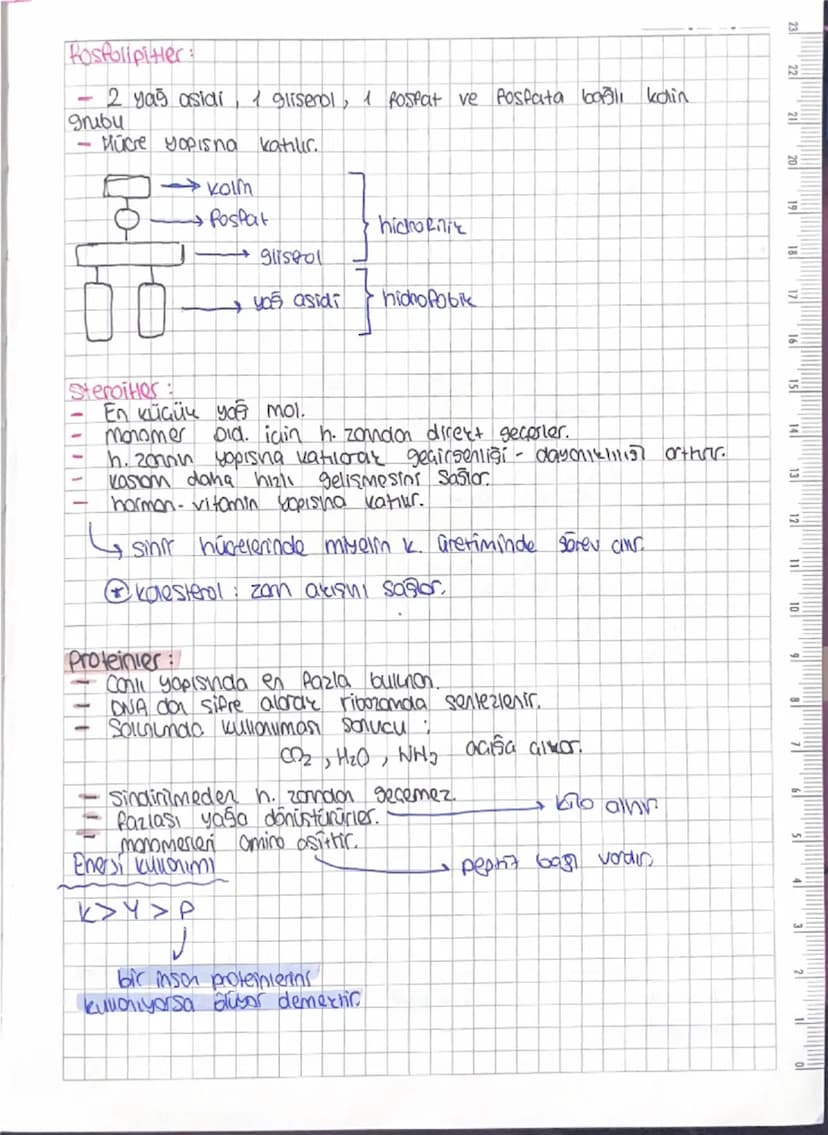 Fosfolipitler:
- 2 yağ asidi, 1 gliserol, 1 fosfat ve fosfata bağlı kolin
grubu
- Hücre yapısına katılır.
→ kolin
→ fosfat
hidrofilik
→ gliserol
→ yağ asidi
hidrofobik
Steroitler:
- En küçük yağ mol.
- monomer old. için h. zarından direkt geçerler.
- h. zarının yapısına katılarak geçirgenliği - dayanıklılığı arttırır.
- kasların daha hızlı gelişmesini sağlar.
- hormon - vitamin yapısına katılır.
↳ sinir hücrelerinde miyelin k. üretiminde görev alır.
* kolesterol: zarın akışını sağlar.
Proteinler:
- Canlı yapısında en fazla bulunan.
- DNA dan şifre alarak ribozomda sentezlenir.
- Solunumda kullanılması sonucu;
CO2, H2O, NH3 açığa çıkar.
- sindirilmeden h. zarından geçemez.
- fazlası yağa dönüştürürler. → kilo alınır
- monomerleri amino asittir. → peptit bağı vardır.
Enerji kullanımı
K > Y > P
bir insan proteinlerini
kullanıyorsa ölüyor demektir.
23
22
21
20
19
18
17
16
15
14
13
12
11
10
9
8
7
6
5
4
3
2
1
0